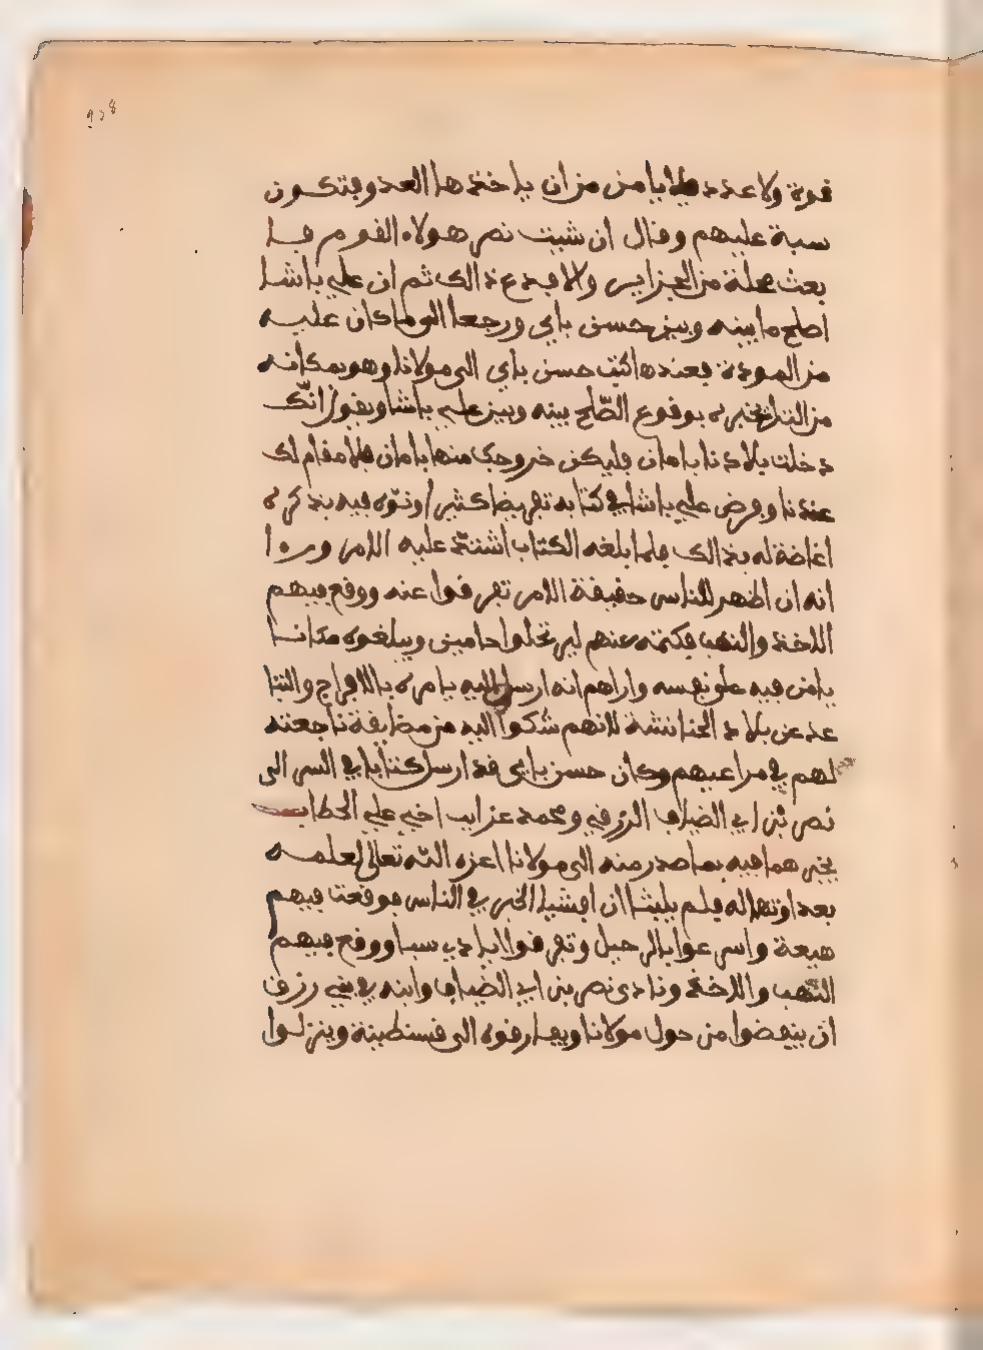 قوة ولا عدد فلا يامن من ان ياخذها العدو وتكون
سبة عليهم وقال ان شيت نصر هولاء القوم فا
بعث محلة من الجزاير والا فدع ذالك ثم ان علي باشا
اصلح ما بينه وبين حسن باي ورجعا الى ما كان عليه
من المودة فعندها كتب حسن باي الى مولانا وهو بمكانه
من التل يخبره بوقوع الصّلح بينه وبين علي باشا ويقول انّك
دخلت بلادنا بامان فليكن خروجك منها بامان فلا مقام لك
عندنا وقرض علي باشا في كتابه تقريضا كثيرا ونوّه فيه بذكره
اغاضة له بذالك فلما بلغه الكتاب اشتدّ عليه الامر ورءا
انه ان اظهر للناس حقيقة الامر تفرقوا عنه ووقع فيهم
الاخذ والنهب فكتمه عنهم ليرتحلوا حامين ويبلغوه مكانا
يامن فيه على نفسه واراهم انه ارسل اليه يامره بالافراج والتبا
عد عن بلاد الحنانشة لانهم شكوا اليه من مضايقة ناجعته
لهم في مراعيهم وكان حسن باي قد ارسل كتابا في السر الى
نصر بن ابي الضياف الرزقي ومحمد عزايب اخي علي الحطاب
يخبرهما فيه بما صدر منه الى مولانا اعزه اللّه تعالى لعلمه
بعداوتهما له فلم يلبثا ان افشيا الخبر في الناس فوقعت فيهم
هيعة واسرعوا بالرحيل وتفرقوا ايادي سبا ووقع فيهم
النّهب والاخذ ونادى نصر بن ابي الضياف وابنه في بني رزق
ان ينفضوا من حول مولانا ويفارقوه الى قسنطينة وينزلوا